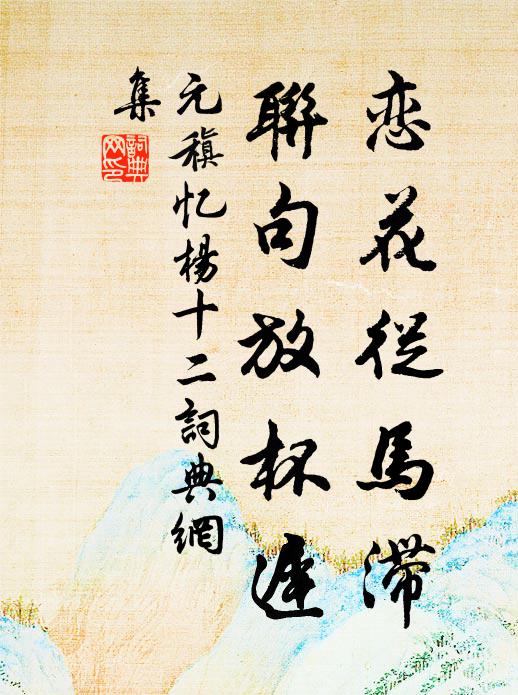 恋花從馬滯
聯句放杯遲
元稹忆楊十二詞典網
集
詞典
网印